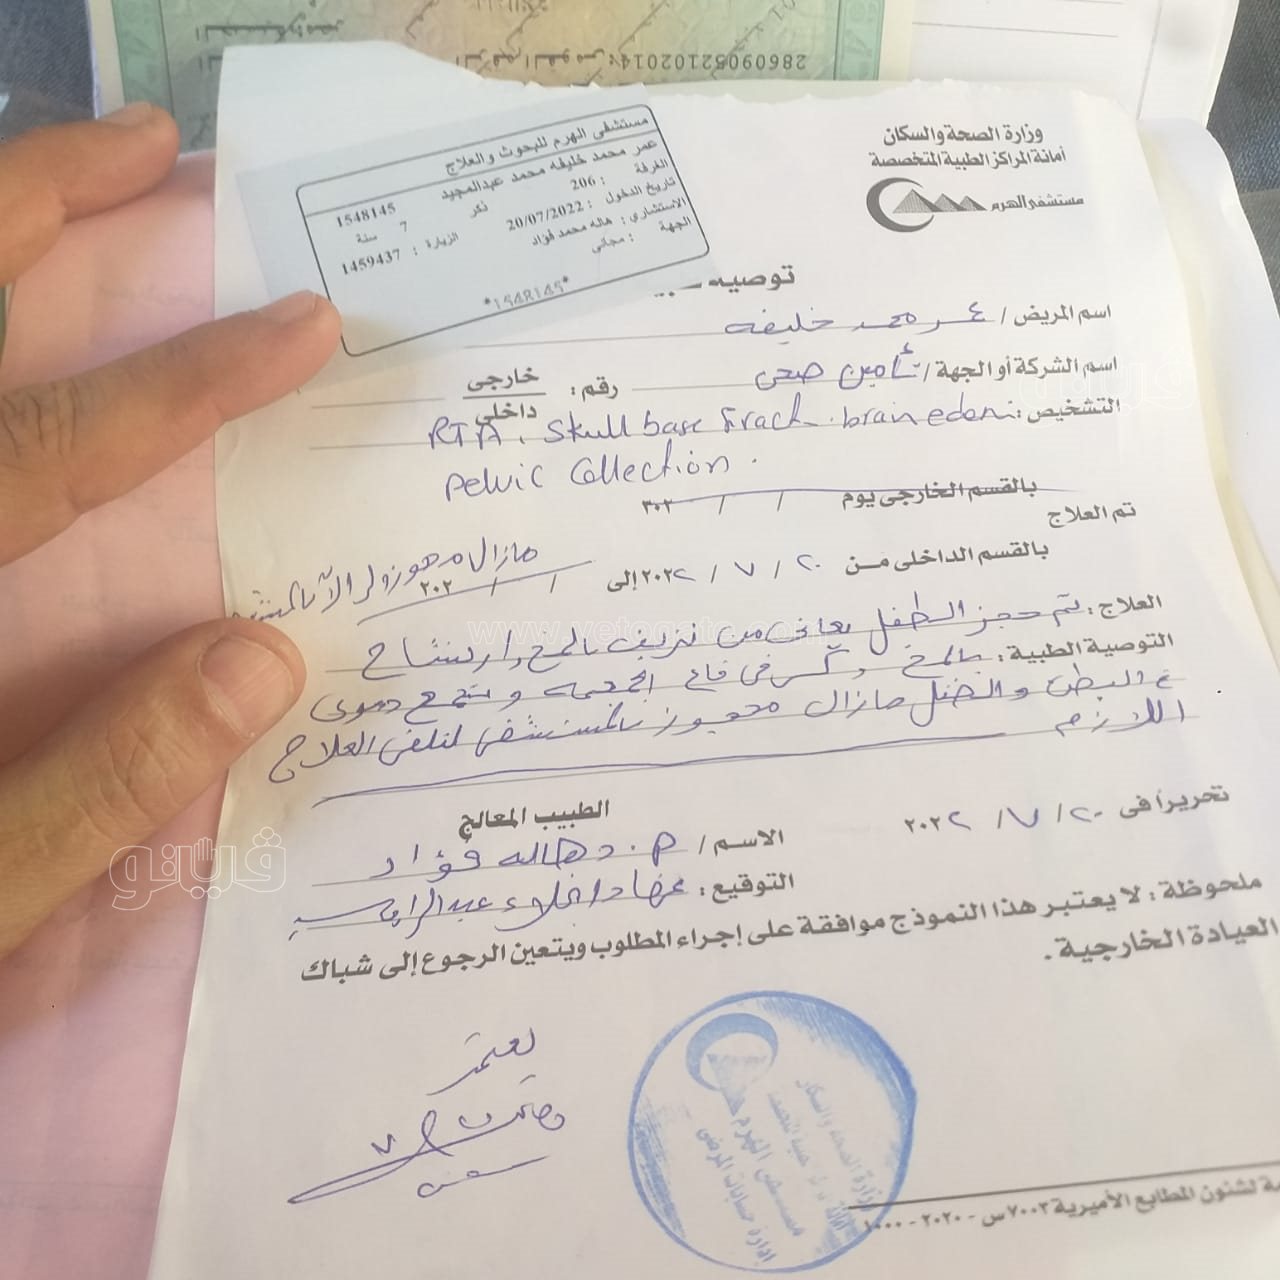 28609052102014
وزارة الصحة والسكان
أمانة المراكز الطبية المتخصصة
مستشفى الهرم
مستشفى الهرم للبحوث والعلاج
عمر محمد خليفه محمد عبدالمجيد 1548145
الغرفة : 206 ذكر 7 سنة
تاريخ الدخول : 20/07/2022 الزيارة : 1459437
الاستشاري : هاله محمد فؤاد
الجهة : مجاني
*1548145*
توصيه
اسم المريض / عمر محمد خليفه
اسم الشركة أو الجهة / تأمين صحى رقم : خارجى داخلى
التشخيص : RTA, Skull base Fract. brain edem
Pelvic Collection.
بالقسم الخارجى يوم / / ٢٠٢
تم العلاج
بالقسم الداخلى من ٢٠ / ٧ / ٢٠٢٢ إلى / / ٢٠٢ مازال محجوز الى الآن
العلاج : تم حجز الطفل يعانى من نزيف بالمخ وارتشاح
التوصية الطبية : بالمخ وكسر فى قاع الجمجمه وتجمع دموى
البطن والطفل مازال محجوز بالمستشفى لتلقى العلاج
اللازم
تحريراً فى ٢٠ / ٧ / ٢٠٢٢
الطبيب المعالج
الاسم / د هاله فؤاد
التوقيع :
ملحوظة : لا يعتبر هذا النموذج موافقة على إجراء المطلوب ويتعين الرجوع إلى شباك
العيادة الخارجية .
يعتمد
وزارة الصحة والسكان
مستشفى الهرم
إدارة حسابات المرضى
لشئون المطابع الأميرية ٧٠٠٣ س - ٢٠٢٠ - ١٠٠٠
فيتو
فيتو
www.vetogate.com